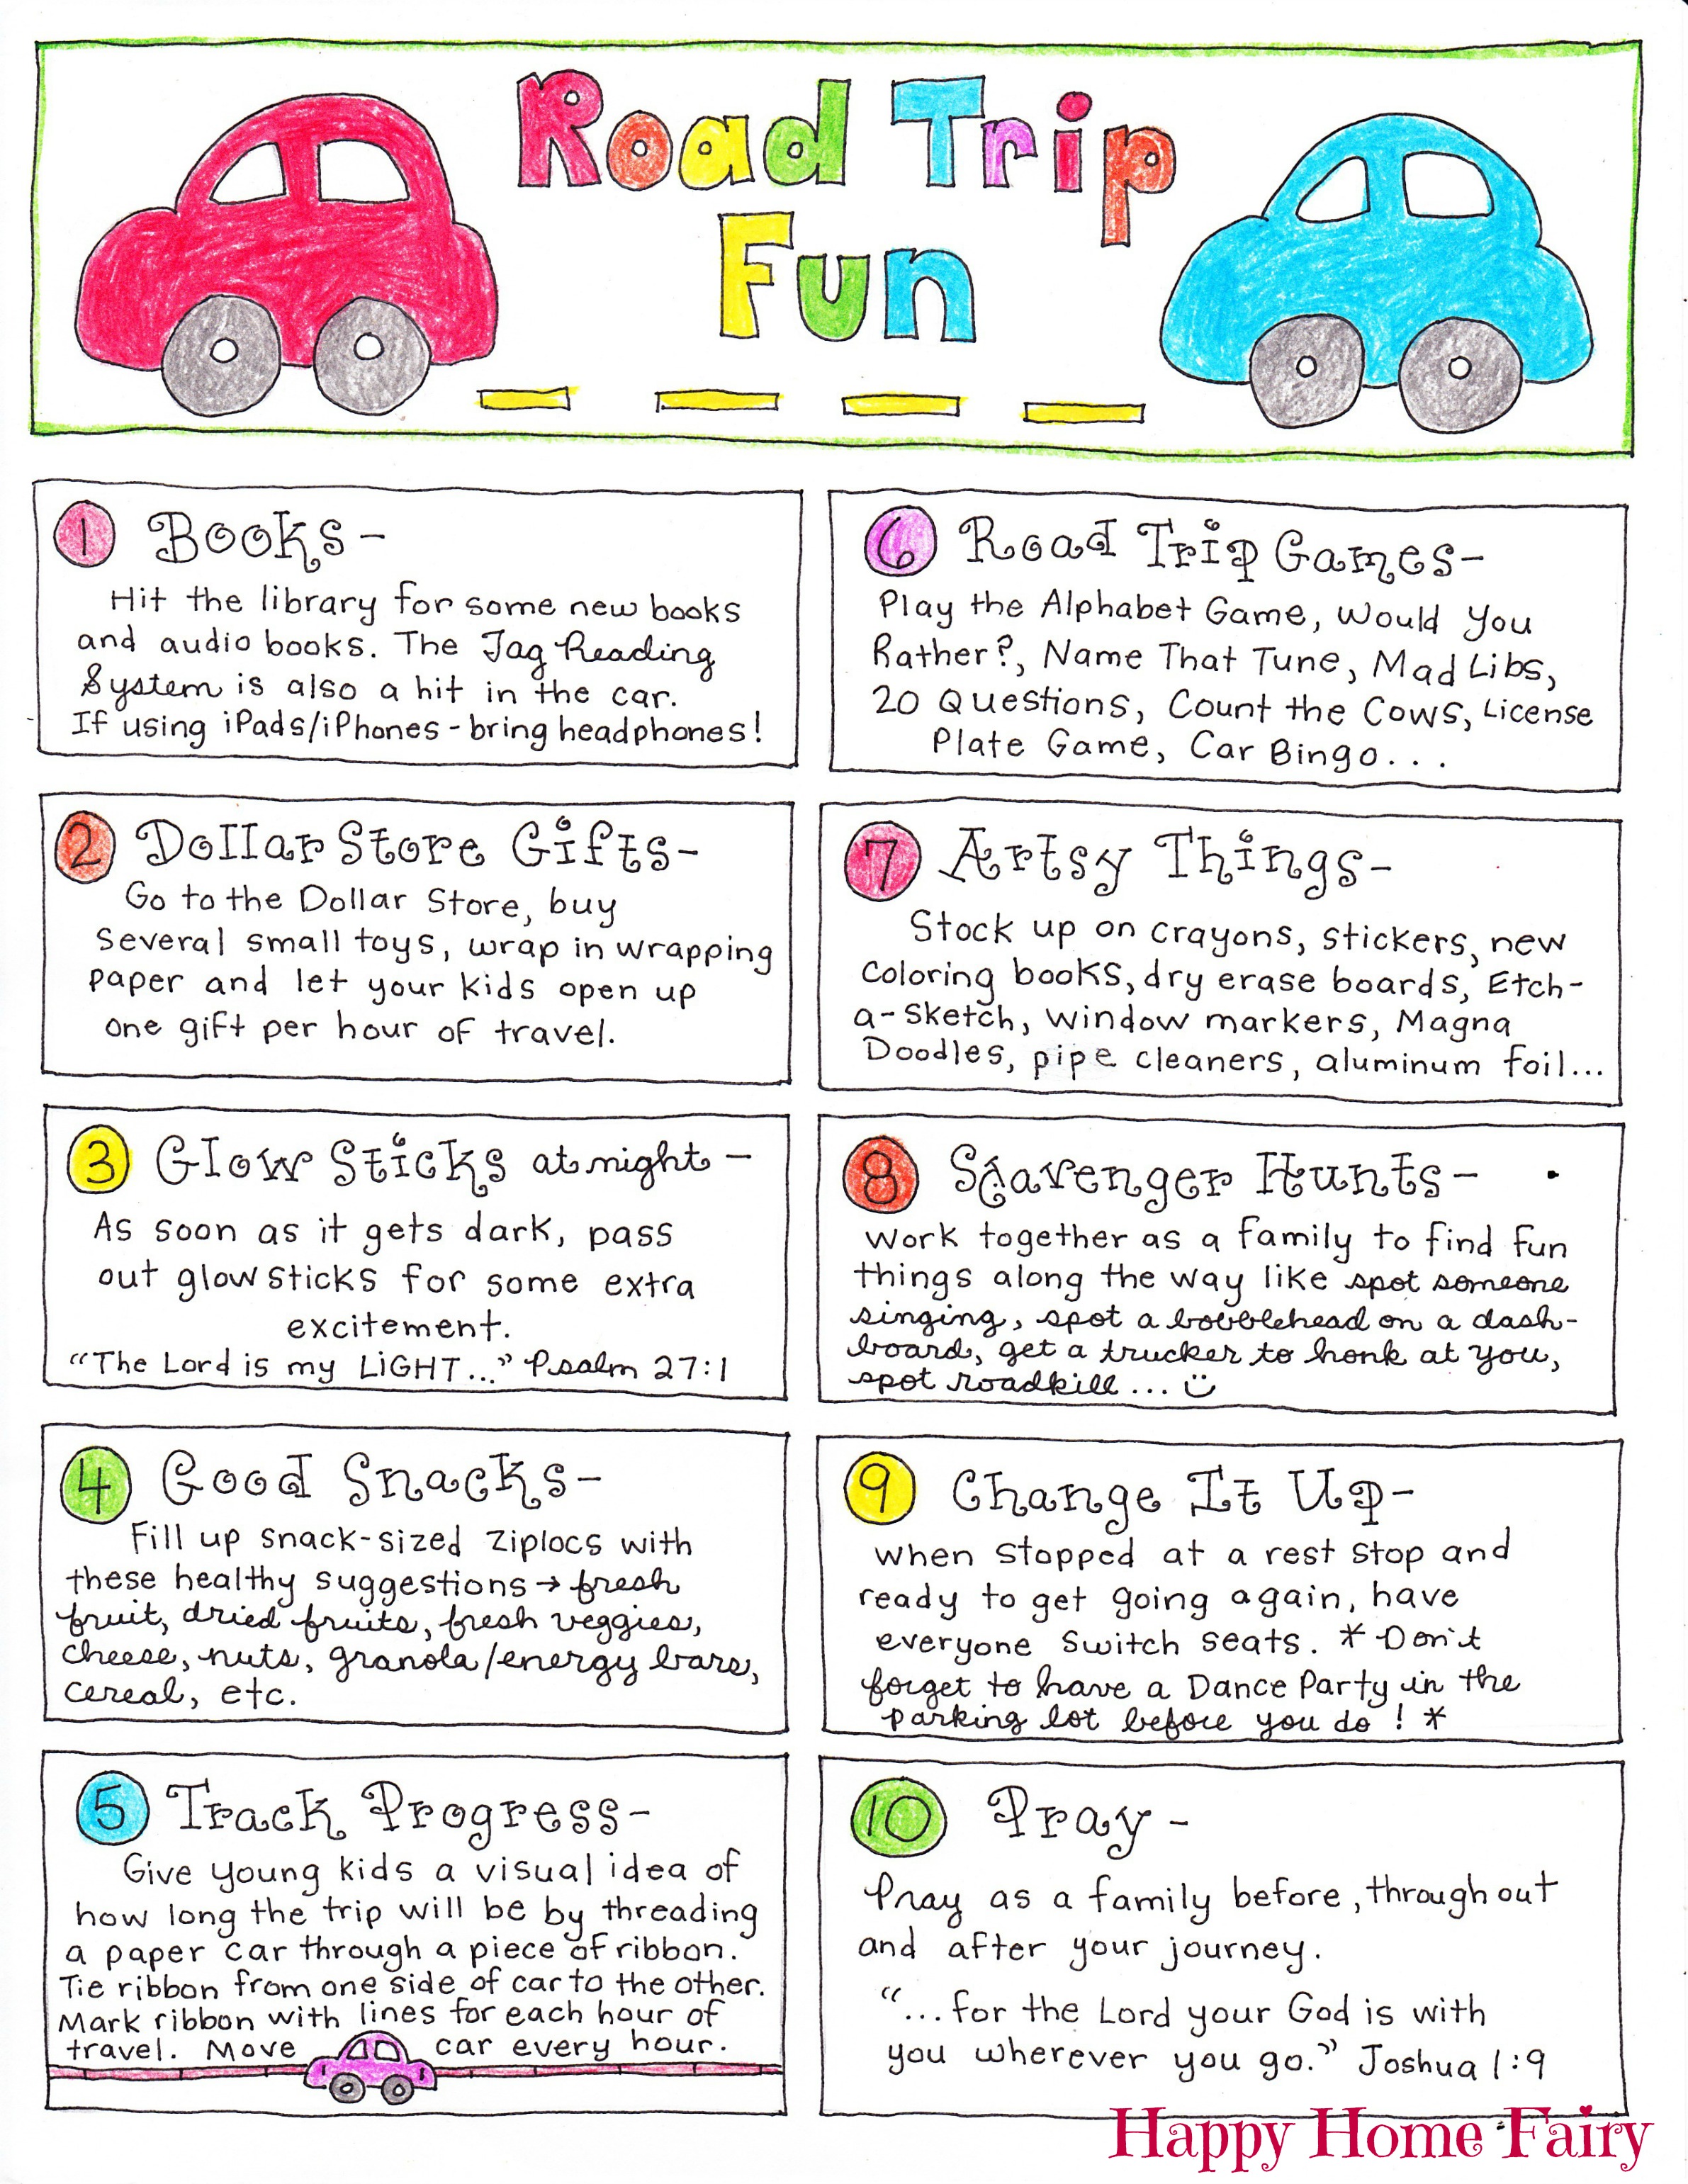 Road Trip
Fun
1 Books-
Hit the library for some new books
and audio books. The Tag Reading
System is also a hit in the car.
If using iPads/iPhones - bring headphones!
2 Dollar Store Gifts-
Go to the Dollar Store, buy
several small toys, wrap in wrapping
paper and let your kids open up
one gift per hour of travel.
3 Glow Sticks at night -
As soon as it gets dark, pass
out glow sticks for some extra
excitement.
"The Lord is my LiGHT..." Psalm 27:1
4 Good Snacks-
Fill up snack-sized ziplocs with
these healthy suggestions → fresh
fruit, dried fruits, fresh veggies,
cheese, nuts, granola/energy bars,
cereal, etc.
5 Track Progress-
Give young kids a visual idea of
how long the trip will be by threading
a paper car through a piece of ribbon.
Tie ribbon from one side of car to the other.
Mark ribbon with lines for each hour of
travel. Move car every hour.
6 Road Trip Games-
Play the Alphabet Game, Would You
Rather?, Name That Tune, Mad Libs,
20 Questions, Count the Cows, License
Plate Game, Car Bingo...
7 Artsy Things-
Stock up on crayons, stickers, new
coloring books, dry erase boards, Etch-
a-Sketch, window markers, Magna
Doodles, pipe cleaners, aluminum foil...
8 Scavenger Hunts-
Work together as a family to find fun
things along the way like spot someone
singing, spot a bobblehead on a dash-
board, get a trucker to honk at you,
spot roadkill... ☺
9 Change It Up-
When stopped at a rest stop and
ready to get going again, have
everyone switch seats. * Don't
forget to have a Dance Party in the
parking lot before you do! *
10 Pray -
Pray as a family before, throughout
and after your journey.
"...for the Lord your God is with
you wherever you go." Joshua 1:9
Happy Home Fairy